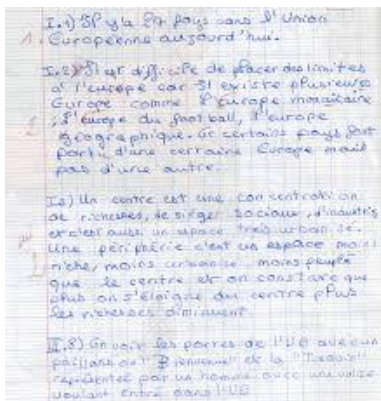 I.1) Il y a 27 pays dans l'Union
Européenne aujourd'hui.
I.2) Il est difficile de placer des limites
à l'europe car Il existe plusieurs
Europe comme l'Europe monétaire
, l'europe du foot ball, l'europe
géographique. Or certains pays font
parti d'une certaine Europe mais
pas d'une autre.
Un centre est une concentration
de richesses, de sièges sociaux, d'industries
et c'est aussi un espace très urbanisé.
Une périphérie c'est un espace moins
riche, moins urbanisé moins peuplé
que le centre et on constate que
plus on s'éloigne du centre plus
les richesses diminuent
II.8) On voit les portes de l'UE avec un
paillasson "Bienvenue" et la
représenté par un homme avec une valise
voulant entré dans l'UE